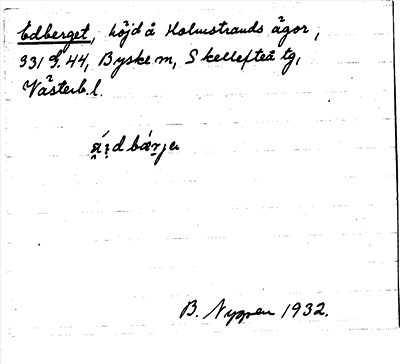 Edberget, höjd å Holmstrands ägor,
331 S. 44, Byske m, Skellefteå tg,
Västerb. l.
B. Nyman 1932.